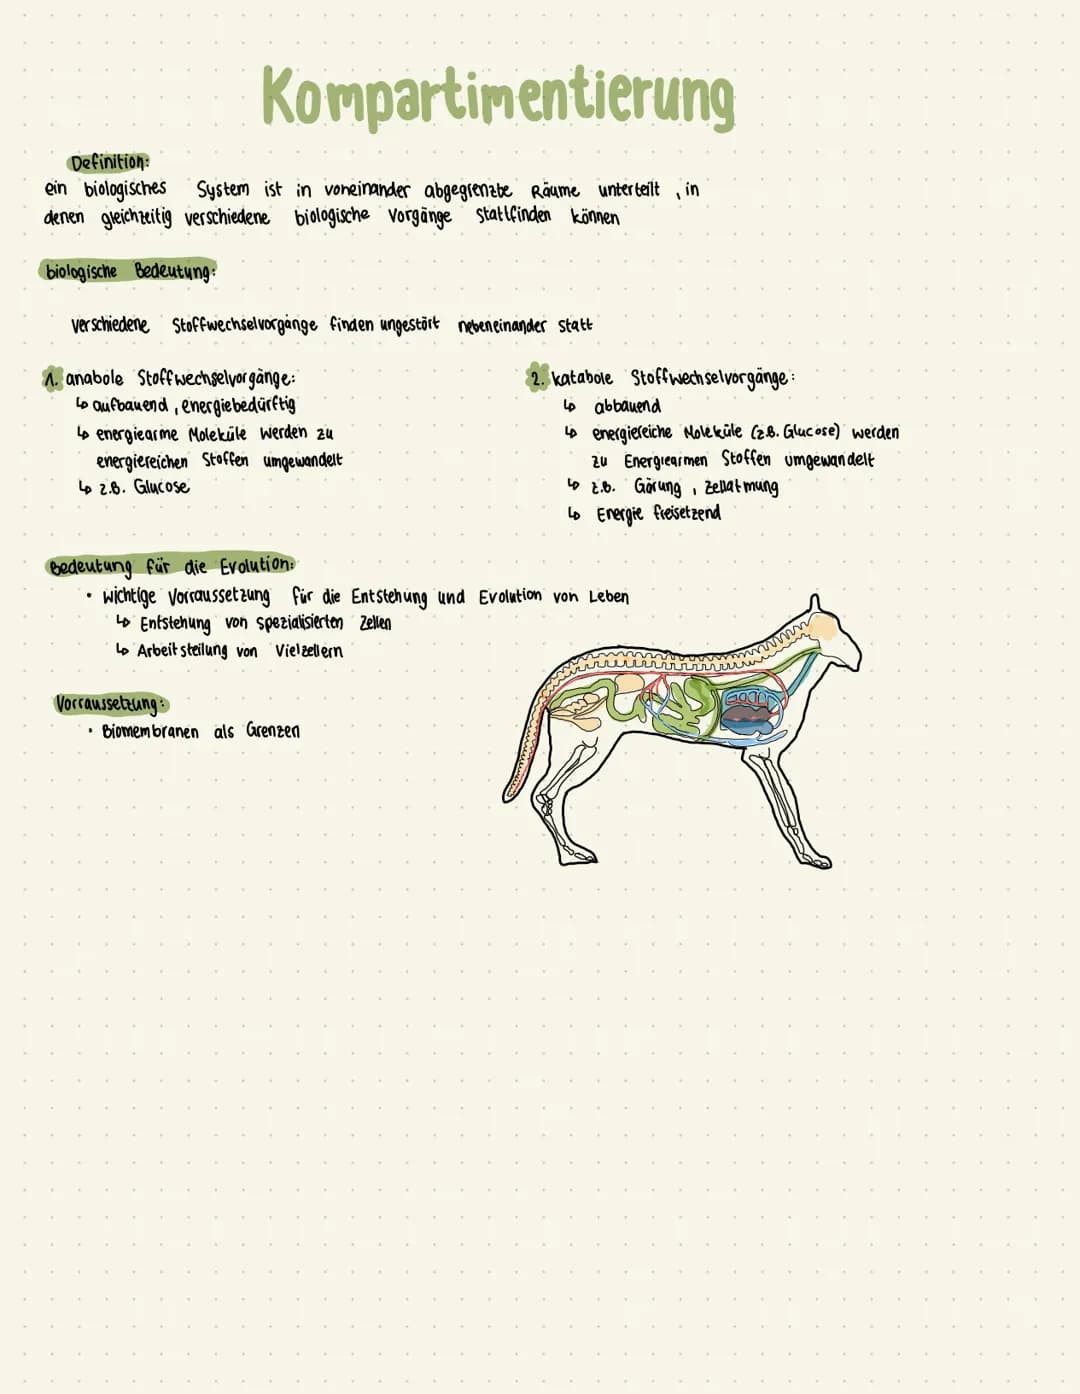 Kompartimentierung
Definition:
ein biologisches System ist in voneinander abgegrenzte Räume unterteilt , in
denen gleichzeitig verschiedene biologische Vorgänge stattfinden können
biologische Bedeutung:
verschiedene Stoffwechselvorgänge finden ungestört nebeneinander statt
1. anabole Stoffwechselvorgänge:
↳ aufbauend , energiebedürftig
↳ energiearme Moleküle werden zu
energiereichen Stoffen umgewandelt
↳ z.B. Glucose
2. katabole Stoffwechselvorgänge:
↳ abbauend
↳ energiereiche Moleküle (z.B. Glucose) werden
zu Energiearmen Stoffen umgewandelt
↳ z.B. Gärung , Zellatmung
↳ Energie freisetzend
Bedeutung für die Evolution:
• wichtige Vorraussetzung für die Entstehung und Evolution von Leben
↳ Entstehung von spezialisierten Zellen
↳ Arbeitsteilung von Vielzellern
Vorraussetzung:
• Biomembranen als Grenzen